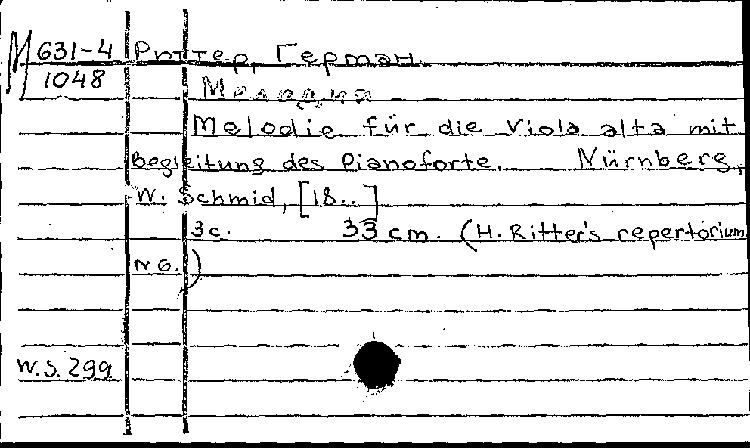 М 631-4 Риттер, Герман.
1048 Мелодия
Melodie für die Viola alta mit
Begleitung des Pianoforte. Nürnberg,
W. Schmid, [18..]
3 с. 33 cm. (H. Ritter's repertorium
N 6.)
W.S. 299